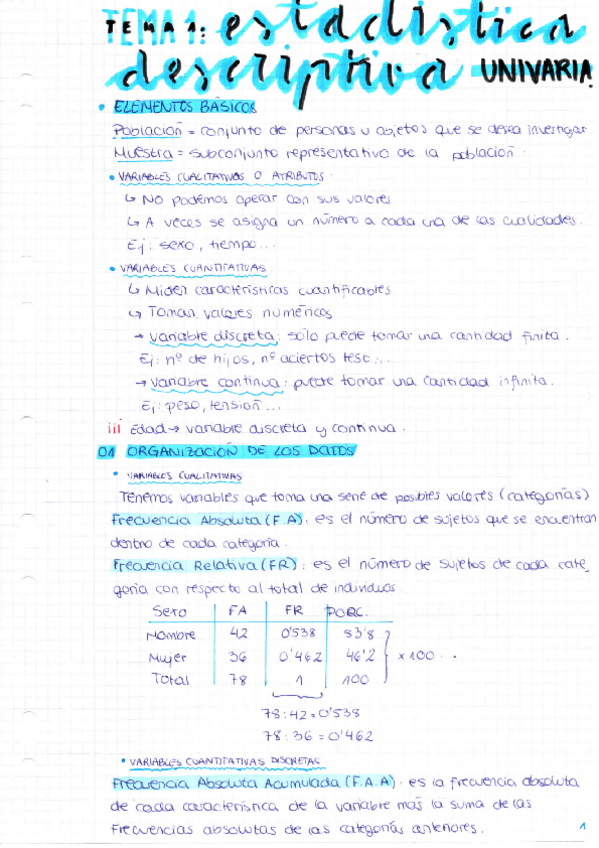 TEMA 1: estadística
descriptiva UNIVARIA
• ELEMENTOS BÁSICOS
Población = conjunto de personas u objetos que se desea investigar
Muestra = subconjunto representativo de la población.
• VARIABLES CUALITATIVAS O ATRIBUTOS.
↳ No podemos operar con sus valores
↳ A veces se asigna un número a cada una de las cualidades.
Ej: sexo, tiempo...
• VARIABLES CUANTITATIVAS
↳ Miden características cuantificables
↳ Toman valores numéricos
→ variable discreta: solo puede tomar una cantidad finita.
Ej: nº de hijos, nº aciertos test...
→ variable continua: puede tomar una cantidad infinita.
Ej: peso, tensión...
¡¡¡ Edad → variable discreta y continua.
01 ORGANIZACIÓN DE LOS DATOS
• VARIABLES CUALITATIVAS
Tenemos variables que toma una serie de posibles valores (categorías)
Frecuencia Absoluta (F.A): es el número de sujetos que se encuentran
dentro de cada categoría.
Frecuencia Relativa (FR): es el número de sujetos de cada cate_
goría con respecto al total de individuos
Sexo FA FR PORC.
Hombre 42 0'538 53'8
Mujer 36 0'462 46'2 x100..
Total 78 1 100
78:42=0'538
78:36=0'462
• VARIABLES CUANTITATIVAS DISCRETAS
Frecuencia Absoluta Acumulada (F.A.A): es la frecuencia absoluta
de cada característica de la variable más la suma de las
Frecuencias absolutas de las categorías anteriores.
1